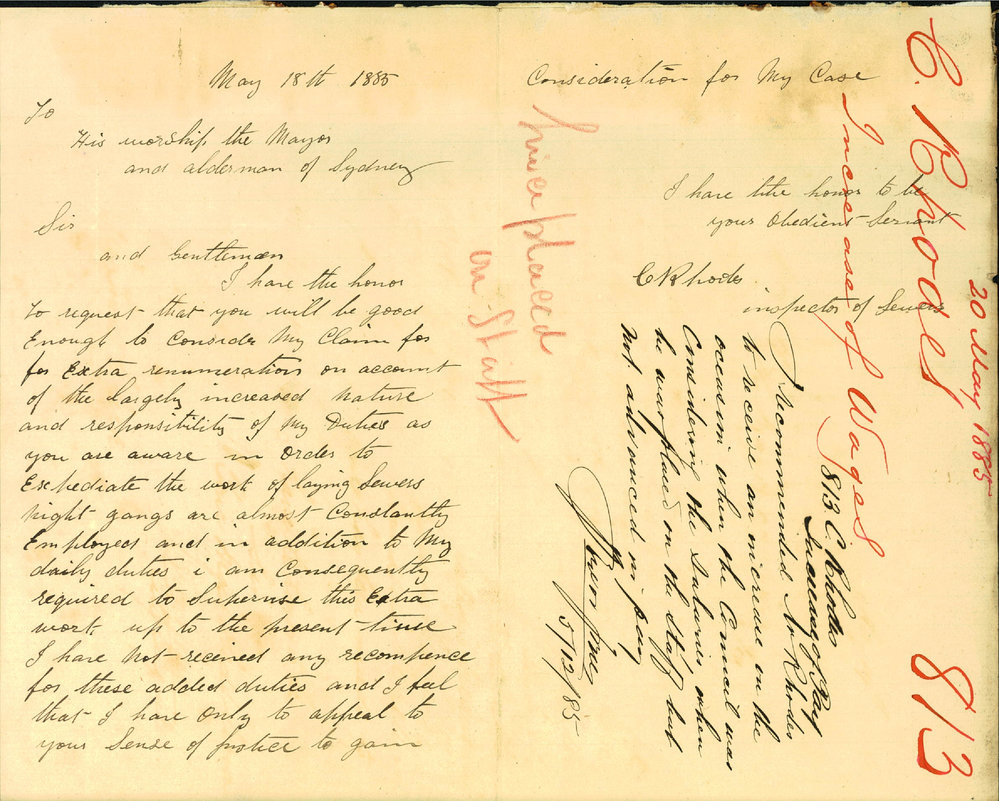 May 18th 1885
To
His worship the Mayor
and alderman of Sydney
Sir
and Gentleman
I have the honor
to request that you will be good
Enough to Consider My Claim for
for Extra renumeration on account
of the largely increased nature
and responsibility of My Duties as
you are aware in order to
Expediate the work of laying Sewers
night gangs are almost Constantly
Employed and in addition to My
daily duties i am Consequently
required to Supervise this Extra
work. up to the present time
I have not received any recompence
for these added duties and I feel
that I have only to appeal to
your Sense of Justice to gain
Consideration for My Case
I have the honor to be
your Obedient Servant
C Rhodes
inspector of Sewers
Since placed
on Staff
I recommended Mr Rhodes
to receive an increase in the
when the Council was
Considering the Salaries, when
he was placed on the Staff but
not advanced in pay
5/12/85
813 C. Rhodes
Increase of Pay
C. Rhodes
Increase of Wages
20 May 1885
813